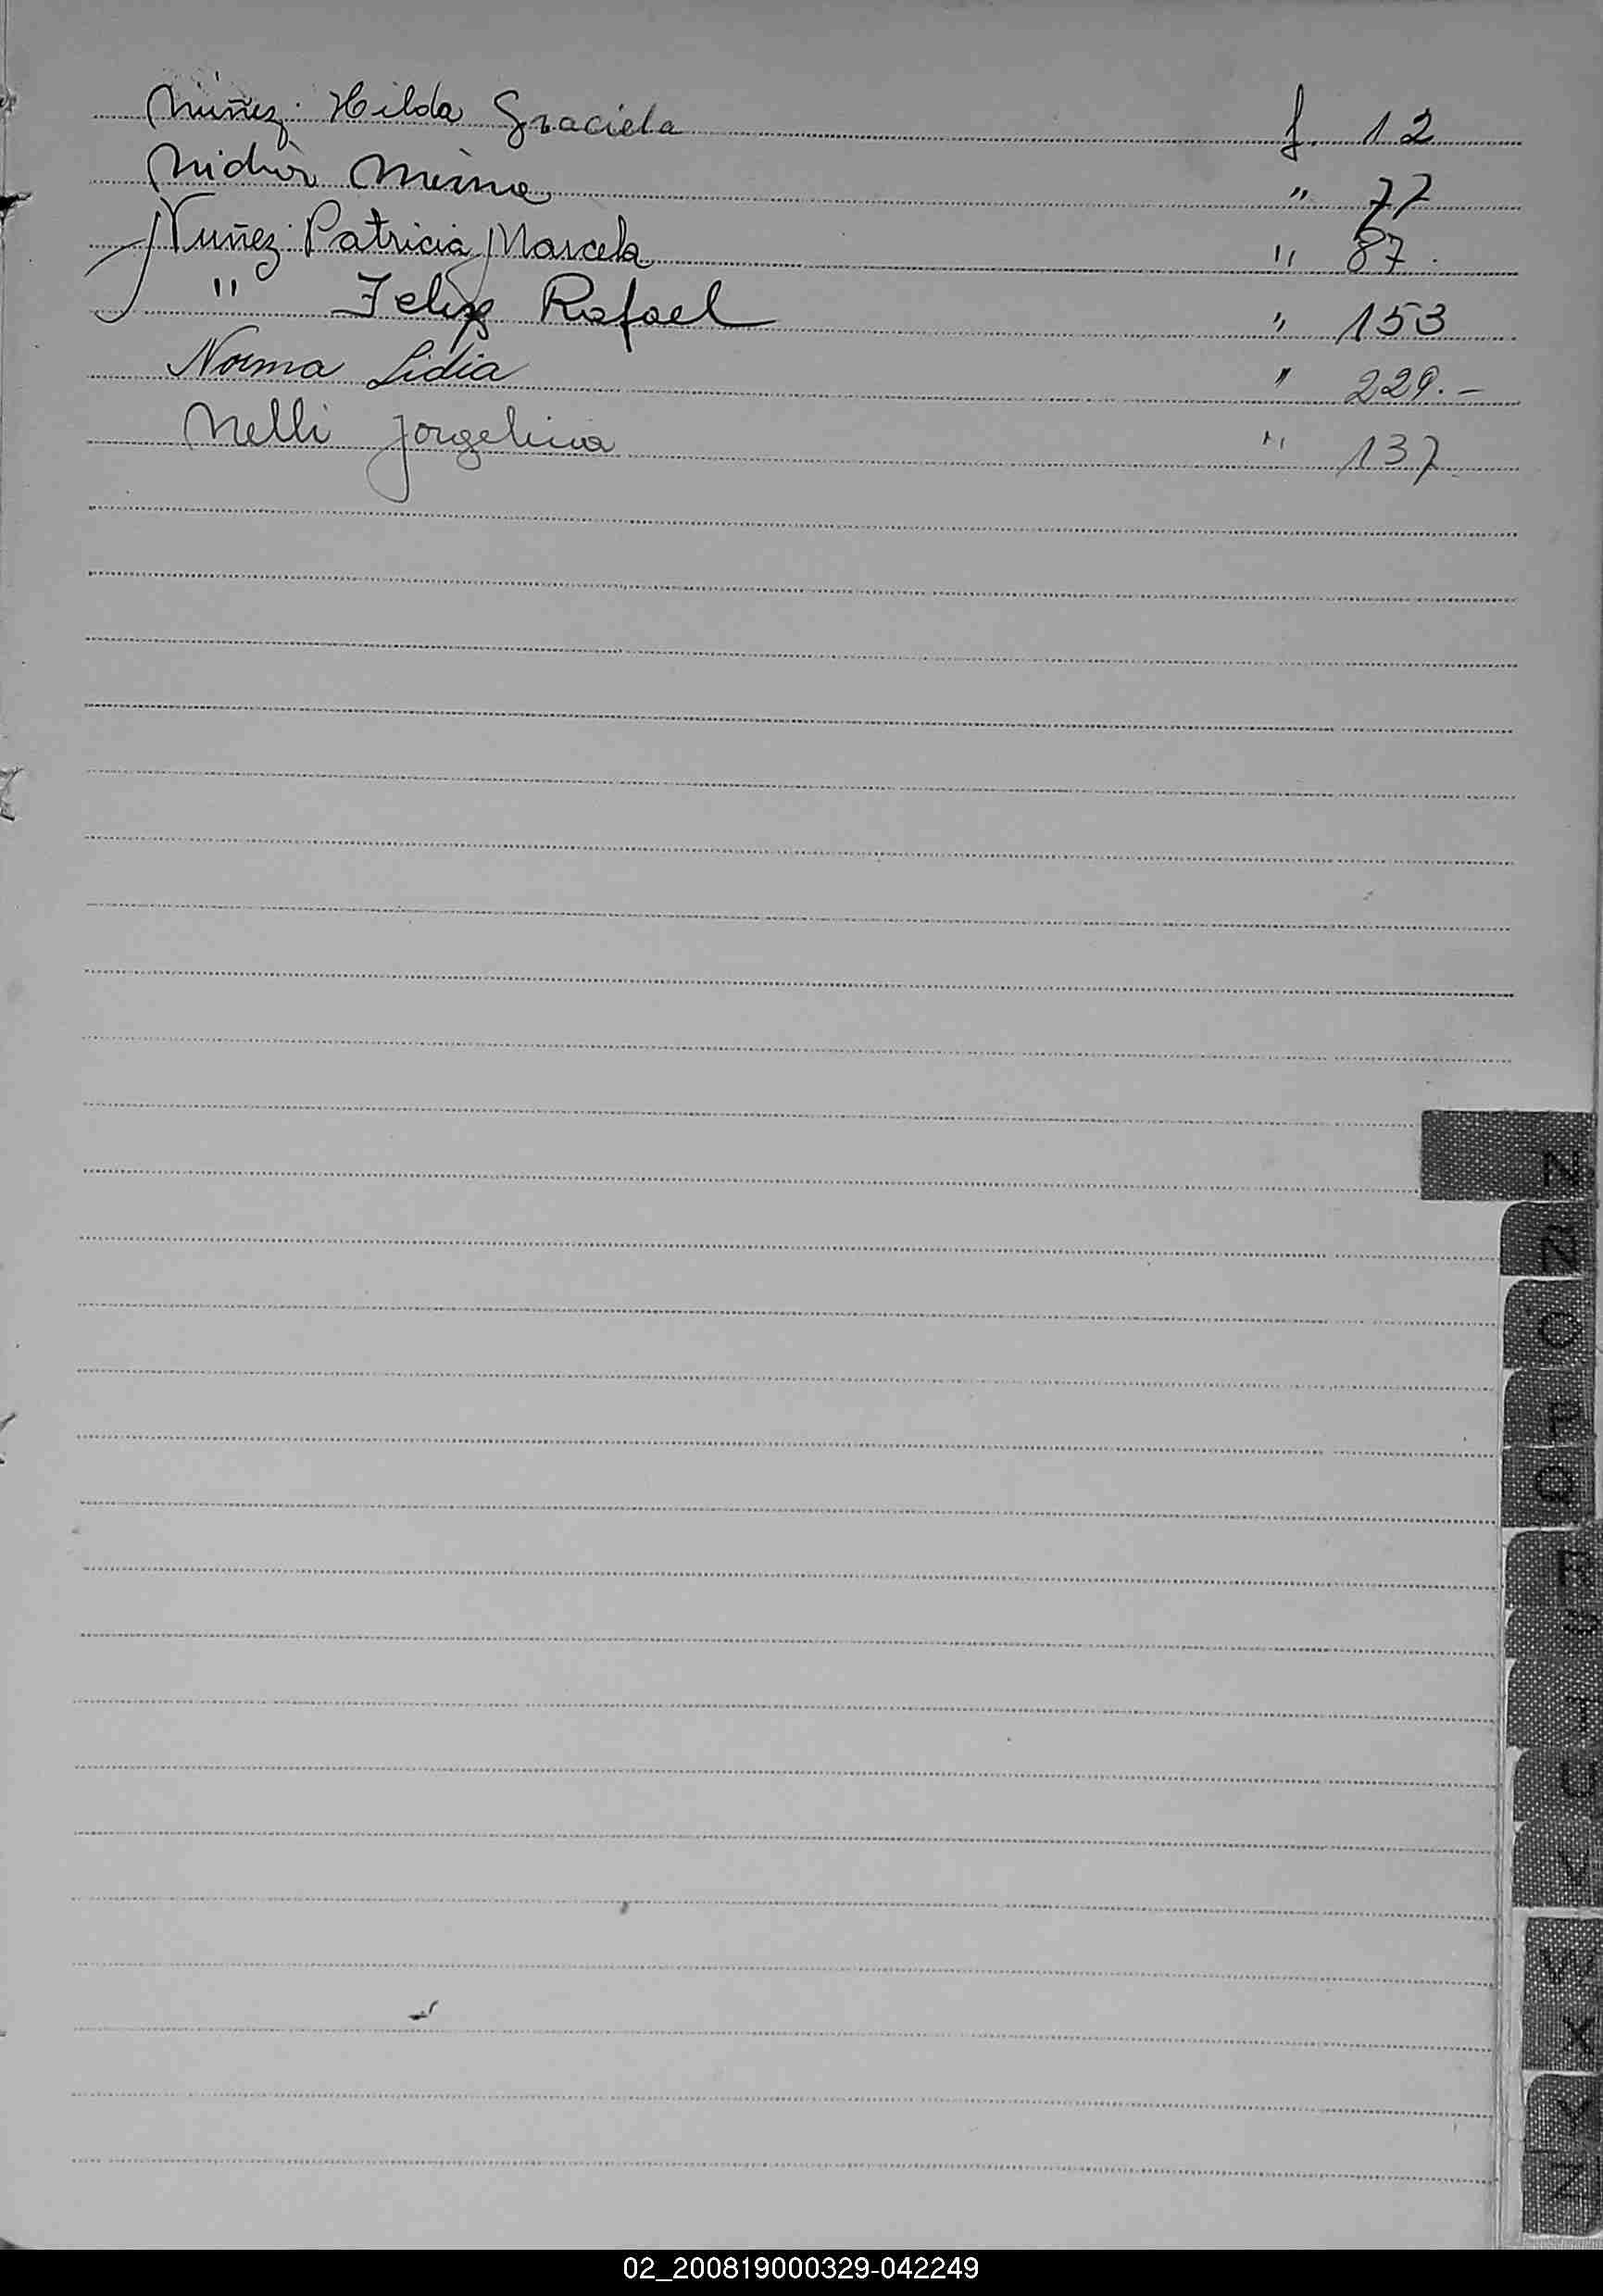 Nuñez Hilda Graciela f. 12
Nidia Mirna " 77
Nuñez Patricia Marcela " 87.
" Felix Rafael " 153
Norma Lidia " 229.-
Nelli Jorgelina " 137
N
Ñ
O
P
Q
R
S
T
U
V
W
X
Y
Z
02_200819000329-042249